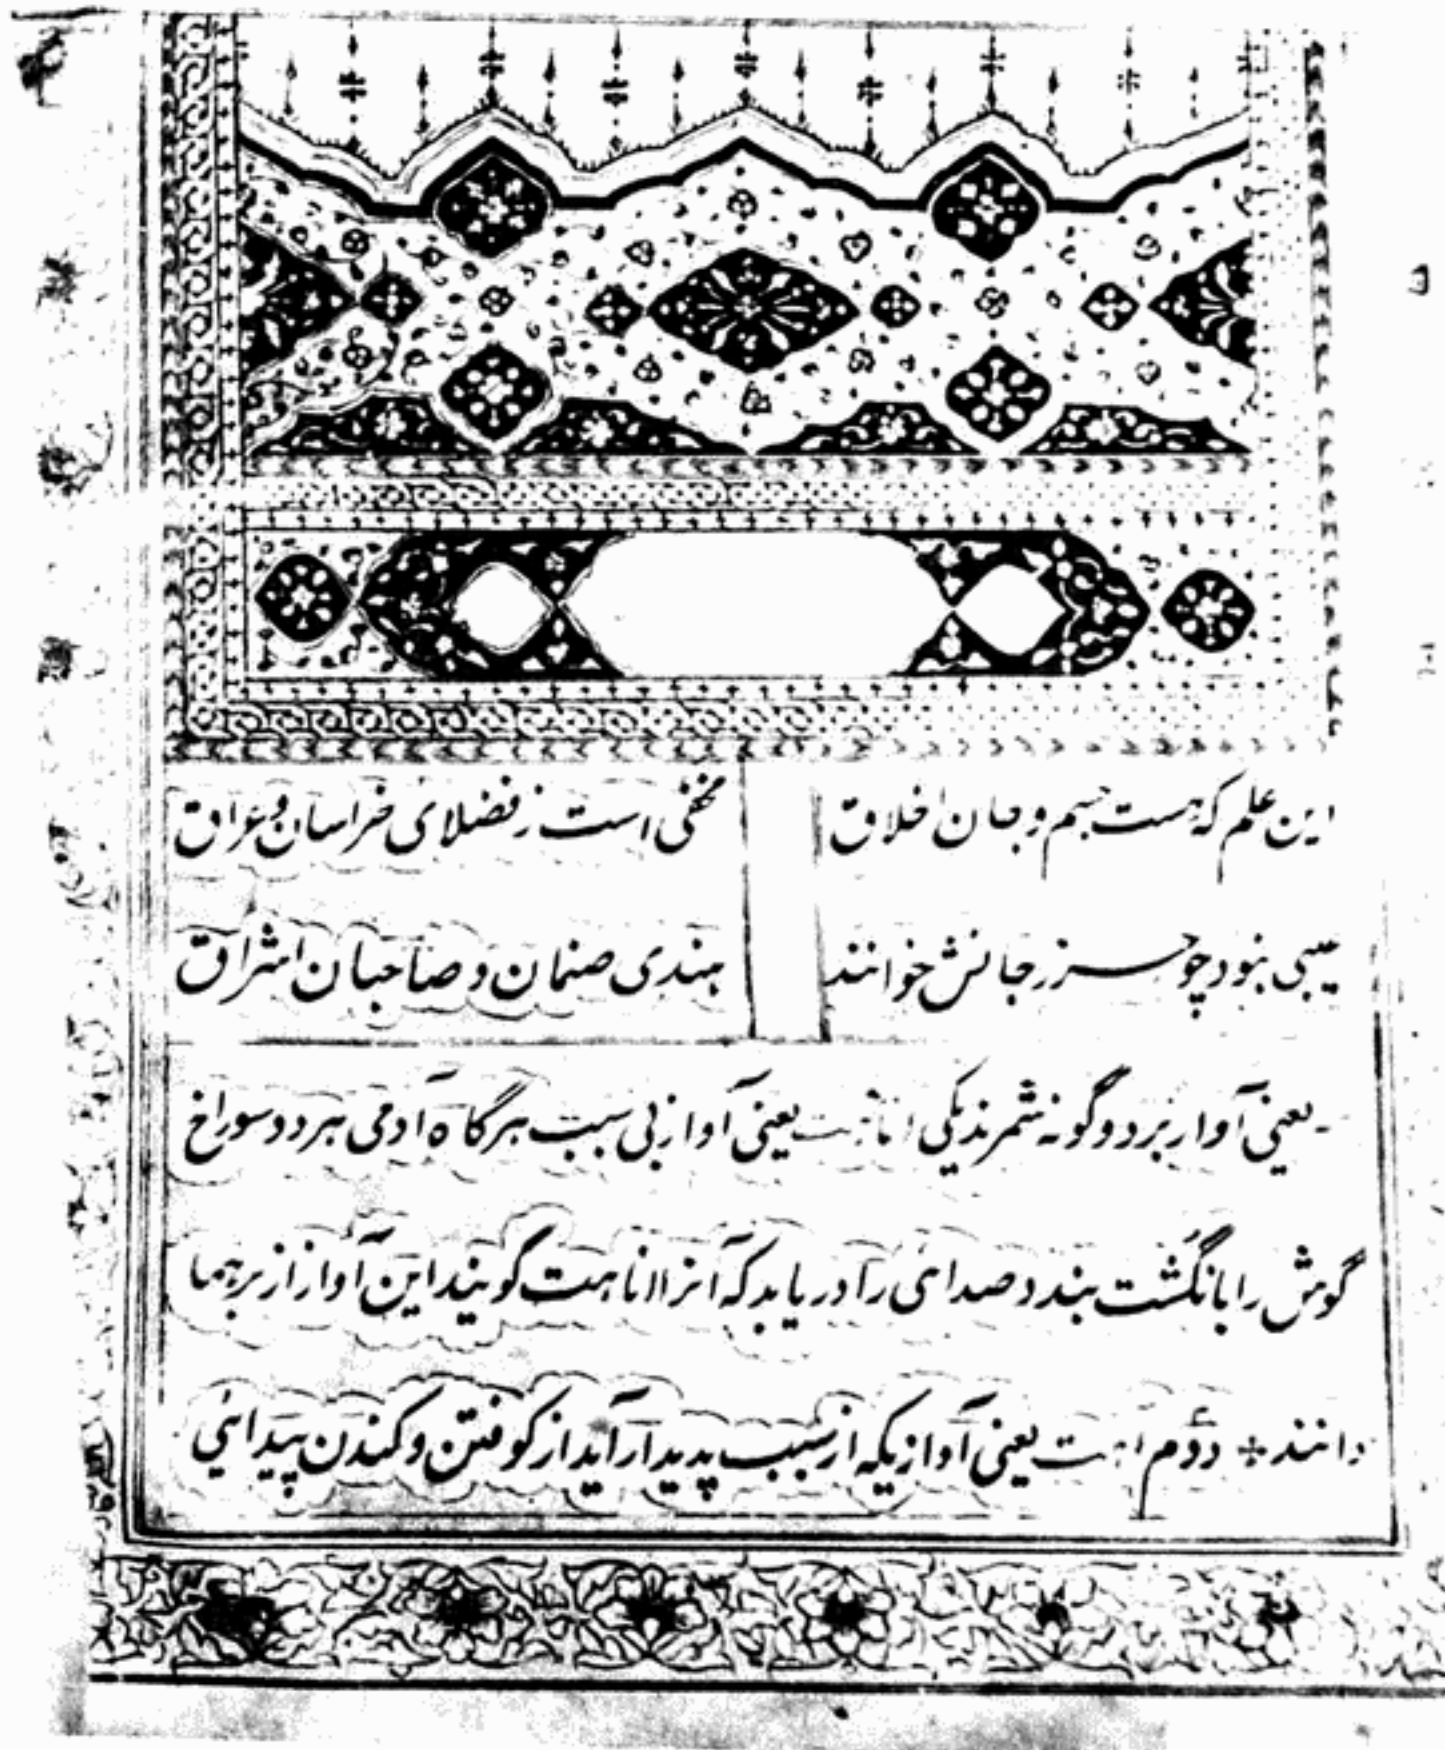 این علم که هست جسم و جان اخلاق مخفی است ز فضلای خراسان و عراق
عیبی نبود چو حسن زر جانش خوانند هندی صنمان و صاحبان اشراق
یعنی آواز بر دو گونه شمرند یکی اناهت یعنی آواز بی سبب هرگاه آدمی هر دو سوراخ
گوش را بانگشت بندد صدائی را دریابد که آنرا اناهت گویند این آواز از برهما
دانند دوم اهت یعنی آوازیکه از سبب پدیدار آید از کوفتن و کندن پیدائی